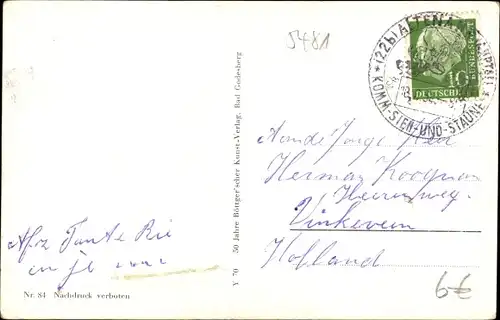 5481
(22b) ALTENA
KOMM-SIEH-UND-STAUNE
10
DEUTSCHE
BUNDESPOST
Aan de Jonge Heer
Herman Koogman
Heerenweg.
Vinkeveen
Holland
Afz Tante Rie
en je
6€
Nr. 84 Nachdruck verboten
Y 70 50 Jahre Röttger'scher Kunst-Verlag, Bad Godesberg